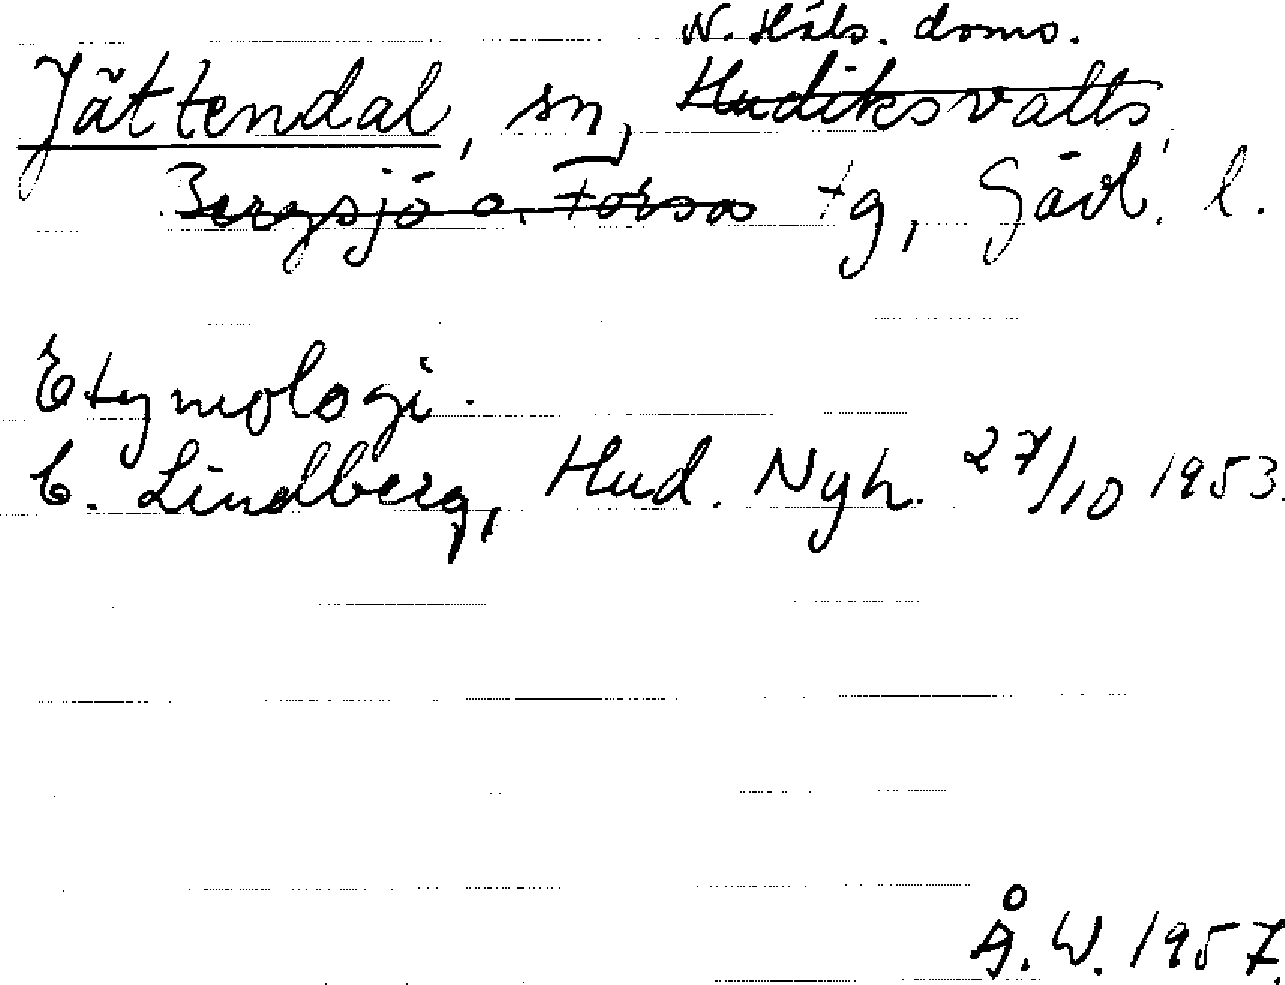 N. Häls. doms.
Jättendal, sn, Hudiksvalls
Bergsjö o. Forsa tg, Gävl. l.
Etymologi.
C. Lindberg, Hud. Nyh. 27/10 1953.
Å. W. 1957.